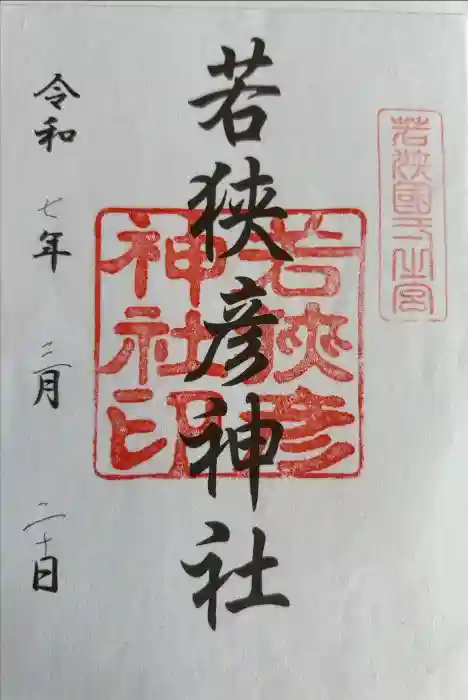 若狭國一之宮
若狹彦神社
若狹彦
神社印
令和七年三月二十日